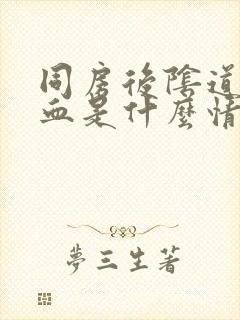 同房後陰道
血是什麼情
夢三生著